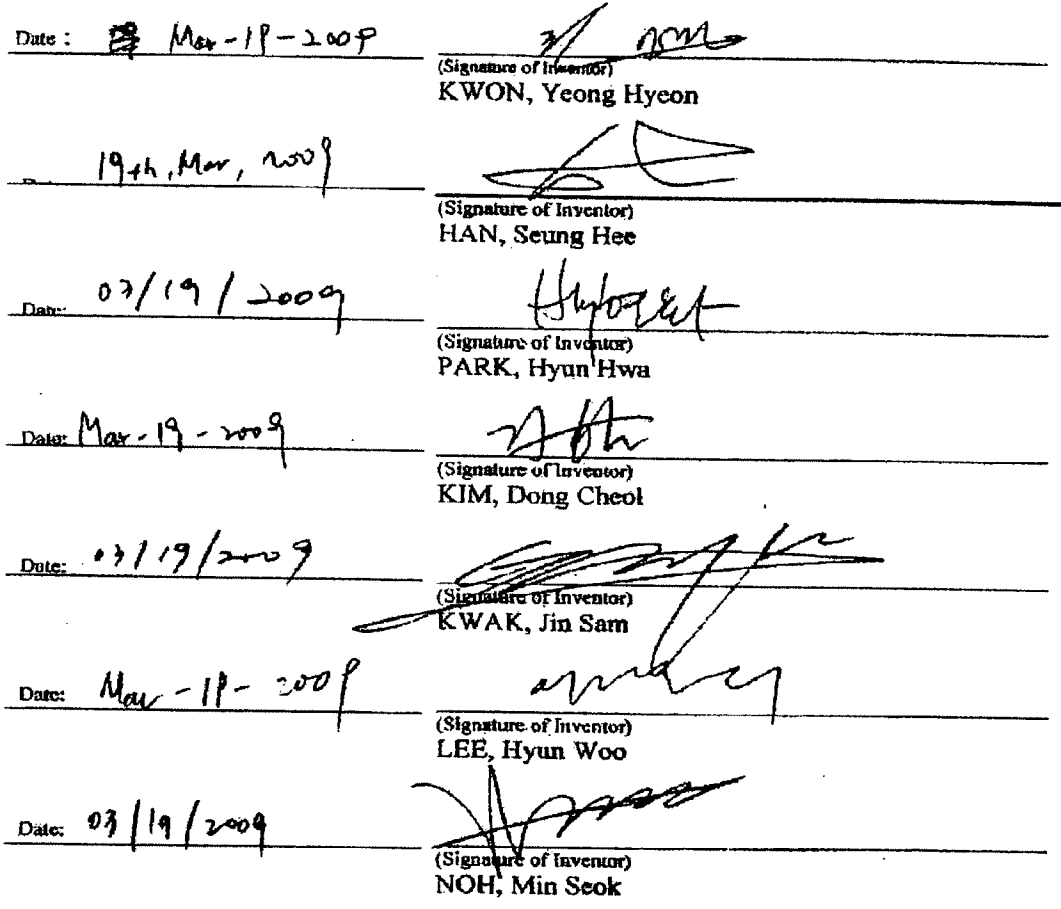 Date : Mar-19-2009
(Signature of Inventor)
KWON, Yeong Hyeon
19th, Mar, 2009
(Signature of Inventor)
HAN, Seung Hee
Date: 03/19/2009
(Signature of Inventor)
PARK, Hyun Hwa
Date: Mar-19-2009
(Signature of Inventor)
KIM, Dong Cheol
Date: 03/19/2009
(Signature of Inventor)
KWAK, Jin Sam
Date: Mar-19-2009
(Signature of Inventor)
LEE, Hyun Woo
Date: 03/19/2009
(Signature of Inventor)
NOH, Min Seok